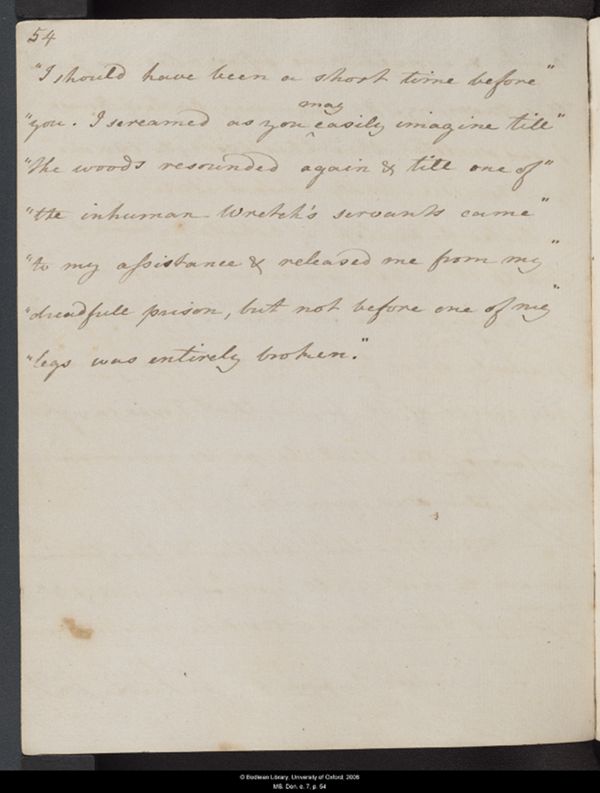 54
"I should have been a short time before"
may
"you. I screamed as you ^ easily imagine till"
"the woods resounded again & till one of"
"the inhuman Wretch's servants came"
"to my assistance & released me from my"
"dreadfull prison, but not before one of my"
"legs was entirely broken."
© Bodleian Library, University of Oxford, 2008
MS. Don. e. 7, p. 54